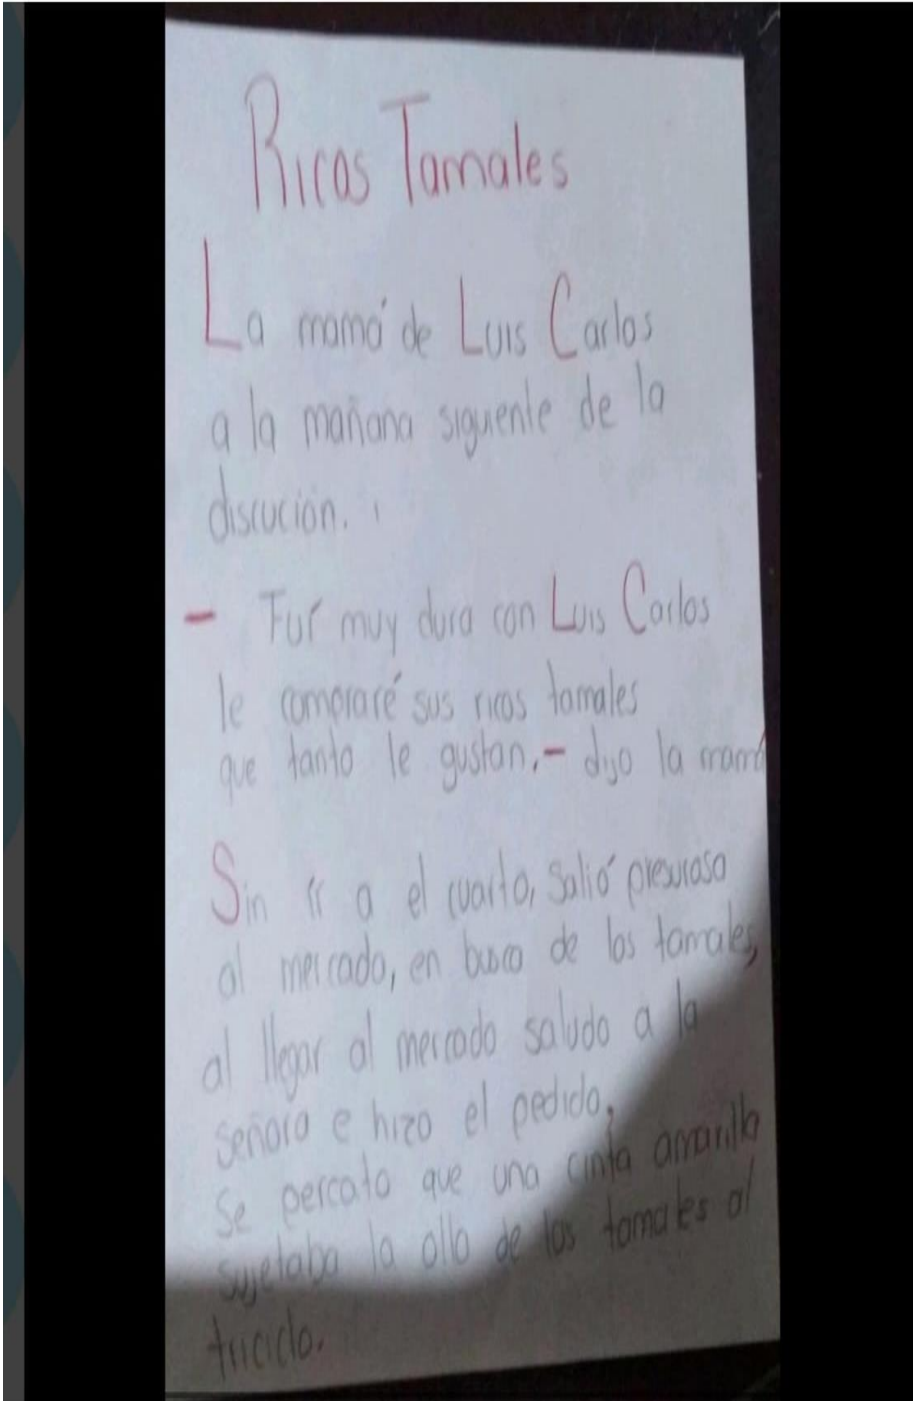 Ricos Tamales
La mamá de Luis Carlos
a la mañana siguiente de la
discución.
- Fuí muy dura con Luis Carlos
le compraré sus ricos tamales
que tanto le gustan.- dijo la mamá
Sin ir a el cuarto, salió presurosa
al mercado, en busca de los tamales,
al llegar al mercado saludo a la
señora e hizo el pedido,
se percato que una cinta amarilla
sujetaba la olla de los tamales al
triciclo.